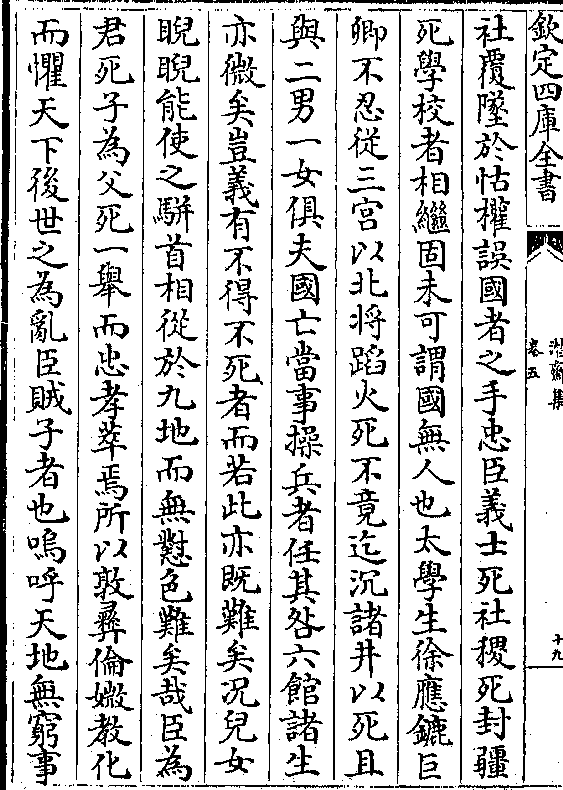 欽定四庫全書
卷五
十九
社覆墜於怙權誤國者之手忠臣義士死社稷死封疆
死學校者相繼固未可謂國無人也太學生徐應鑣巨
卿不忍從三宮以北将蹈火死不竟迄沉諸井以死且
與二男一女俱夫國亡當事操兵者任其咎六館諸生
亦微矣豈義有不得不死者而若此亦既難矣況兒女
睨睨能使之駢首相從於九地而無懟色難矣哉臣為
君死子為父死一舉而忠孝萃焉所以敦彞倫媺教化
而懼天下後世之為亂臣賊子者也嗚呼天地無窮事